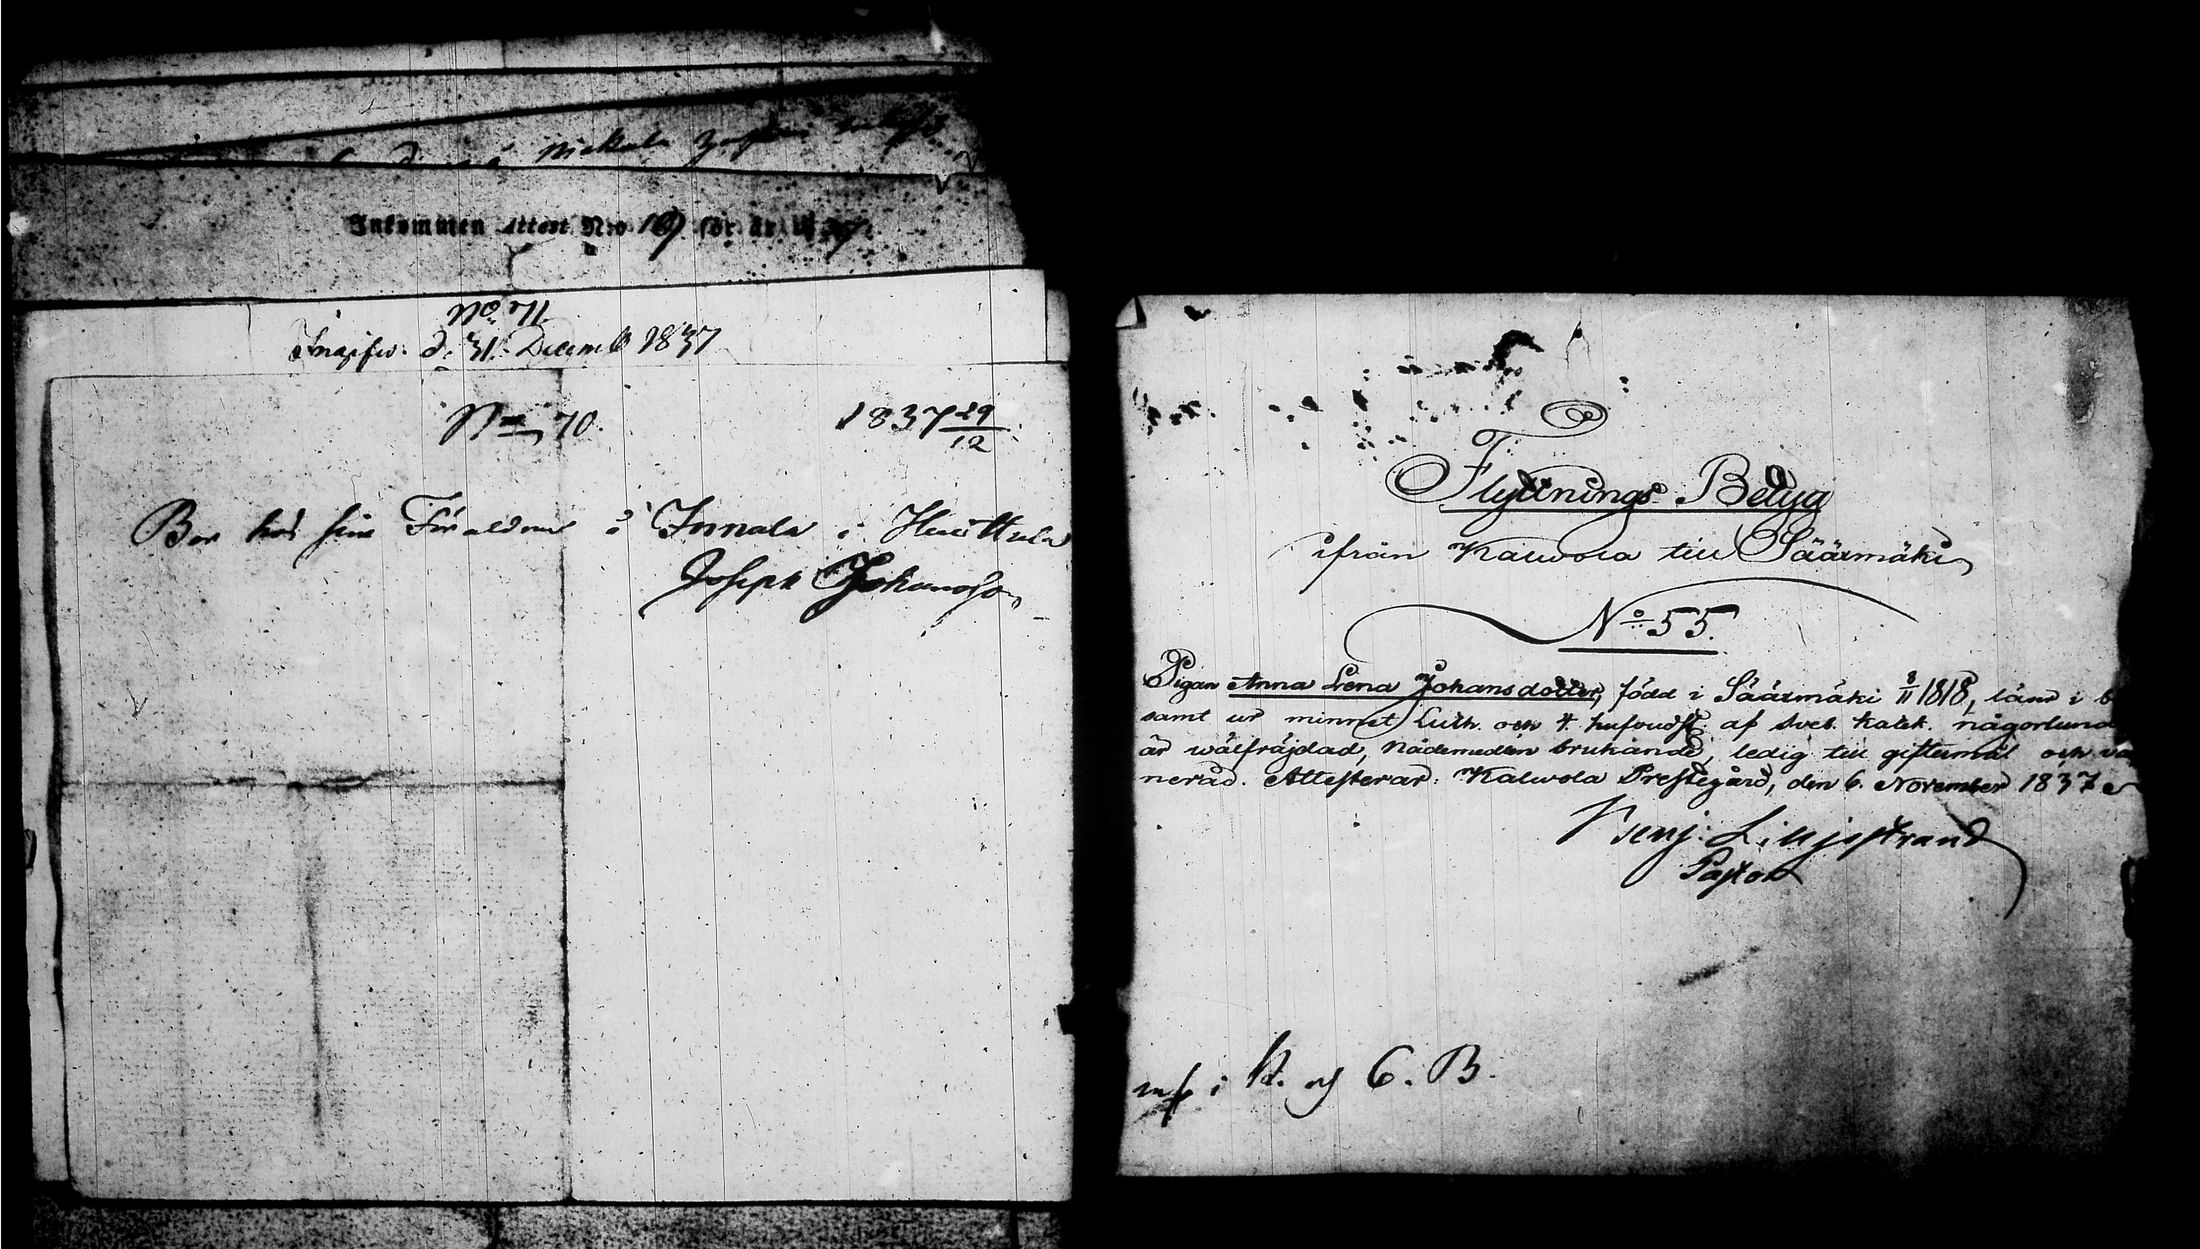 Nickala
Inkommen Attest N:o 19 för år 1837.
No 71.
d. 31. Decemb 1837
No 70. 1837 29/12
Bor hos sine Föräldrar å Innala i Huittula
Joseph Johansson
Flyttnings Betyg
ifrån Kalwola till Säärmäki
No 55.
Pigan Anna Lena Johansdotter, född i Säärmäki 8/11 1818, läser i b
samt ur minnet Luth. och 4 hufvudst. af Sveb. Katek. någorlund
är wälfräjdad, Nådemedlen brukande, ledig till giftermål och va
nerad. Attesterar: Kalwola Prestegård, den 6. November 1837
Benj. Liljestrand
Pastor
i K. af C. B.